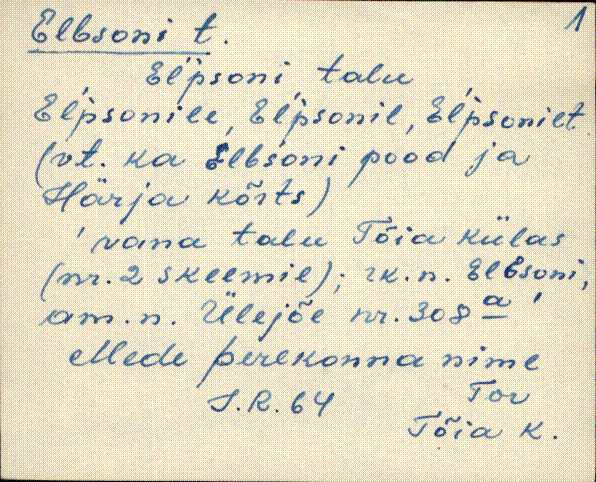 1
Elbsoni t.
El'psoni, talu
El'psonile, El'psonil, El'psonilt.
(vt. ka Elbsoni pood ja
Härja kõrts)
'vana talu Tõia külas
(nr. 2 skeemil); rk.n. Elbsoni,
am.n. Ülejõe nr. 308 a'
Mede perekonna nime
S.R. 64 Tor
Tõia k.